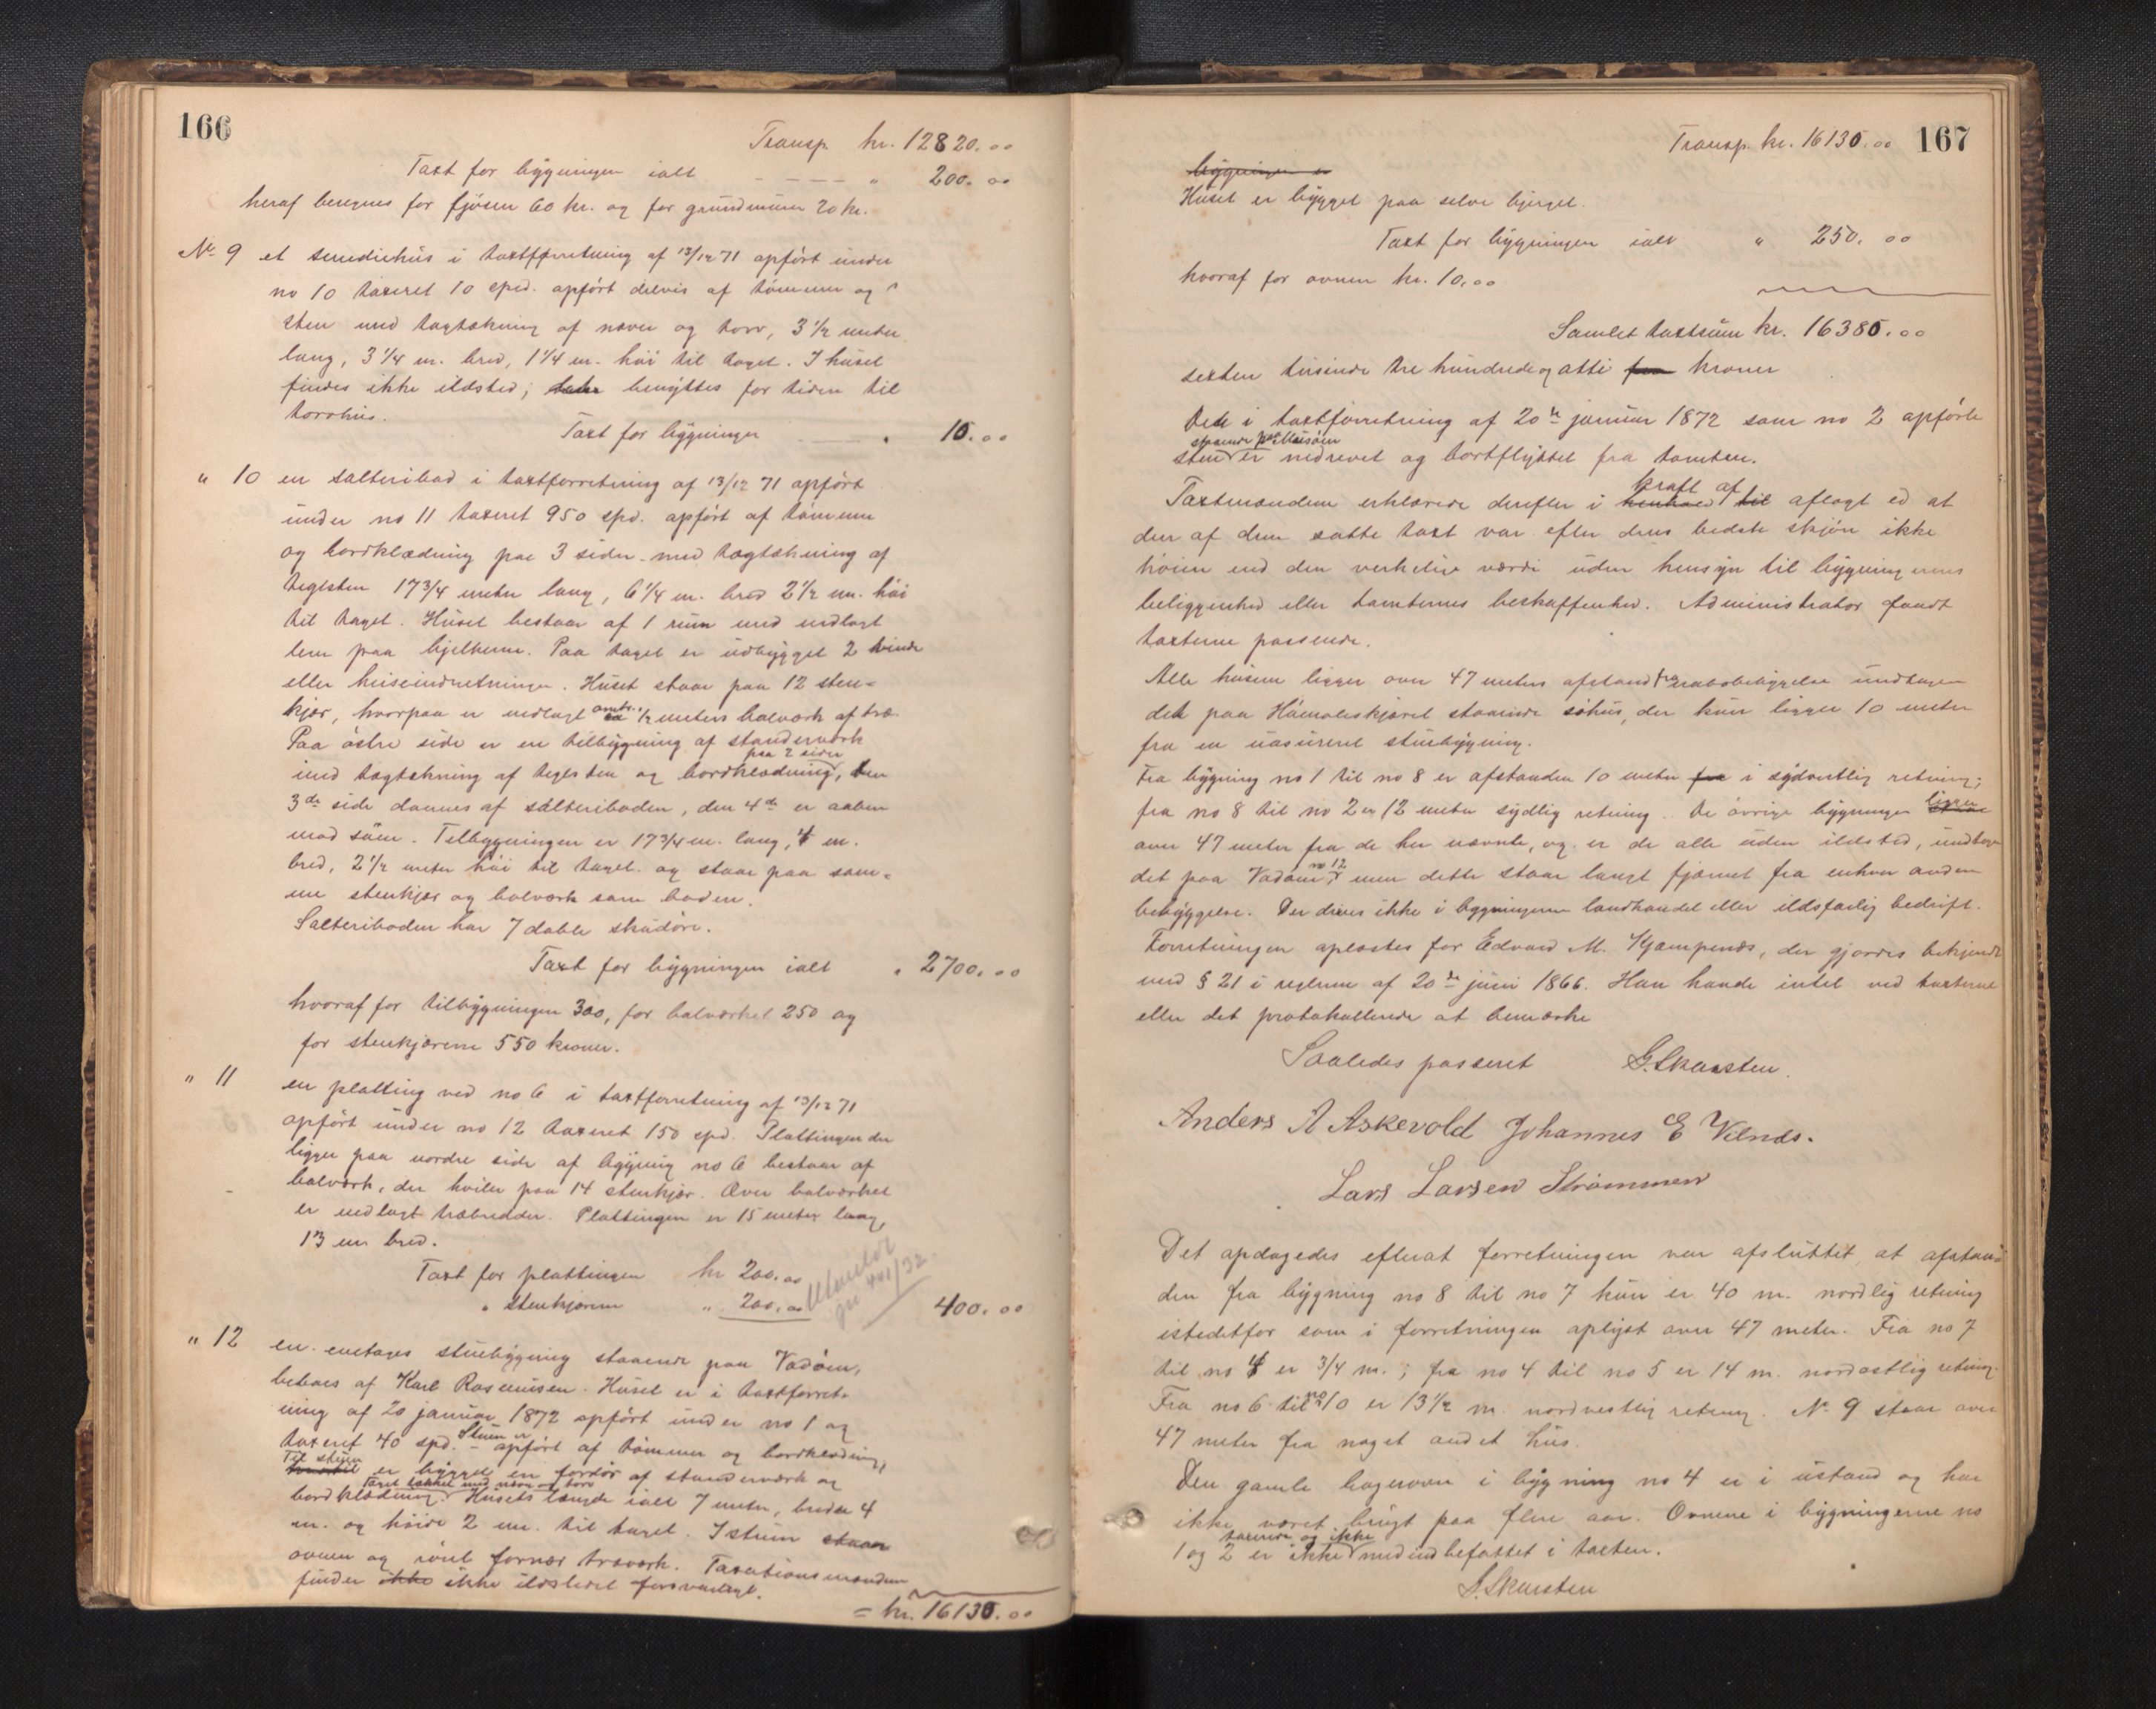 166
Transp. kr. 12820.00
Taxt for bygningen ialt - - - - " 200.00
heraf beregnes for fjösen 60 kr. og for grundmuren 20 kr.
No 9 et smediehus i taxtforretning af 13/12 71 opfört under
no 10 taxeret 10 spd. opfört delvis af tömmer og
sten med tagtækning af næver og torv, 3 1/2 meter
lang, 3 1/4 m. bred, 1 1/4 m. höi til taget. I huset
findes ikke ildsted; benyttes for tiden til
torvhus.
Taxt for bygningen " 10.00
" 10 en salteribod i taxtforretning af 13/12 71 opfört
under no 11 taxeret 950 spd. opfört af tömmer
og bordklædning paa 3 sider med tagtækning af
teglsten 17 3/4 meter lang, 6 1/4 m. bred 2 1/2 m. höi
til taget. Huset bestaar af 1 rum med indlagt
lem paa bjelkerne. Paa taget er udbygget 2 vinde
eller heiseindretninger. Huset staar paa 12 sten-
kjær, hvorpaa er indlagt omtr. 1/2 meters bolværk af træ.
Paa östre side er en tilbygning af standerværk
paa 2 sider
med tagtækning af teglsten og bordklædning, den
3de side dannes af salteriboden, den 4de er aaben
mod söen. Tilbygningen er 17 3/4 m. lang, 4 m.
bred, 2 1/2 meter höi til taget og staar paa sam-
me stenkjær og bolværk som boden.
Salteriboden har 7 doble skuddöre.
Taxt for bygningen ialt " 2700.00
hvoraf for tilbygningen 300, for bolværket 250 og
for stenkjærene 550 kroner.
" 11 en platting ved no 6 i taxtforretning af 13/12 71
opfört under no 12 taxeret 150 spd. Plattingen der
ligger paa nordre side af bygning no 6 bestaar af
bolværk, der hviler paa 14 stenkjær. Over bolværket
er indlagt træbredder. Plattingen er 15 meter lang,
13 m bred.
Taxt for plattingen kr 200.00
" Stenkjærene " 200.00 400.00
" 12 en enetages stuebygning staaende paa Vadöen,
beboes af Karl Rasmussen. Huset er i taxtforret-
ning af 20 januar 1872 opfört under no 1 og
taxeret 40 spd. Stuen er opfört af tömmer og bordklædning,
Til stuen er bygget en fordör af standerværk og
Taget tækket med næver og torv
bordklædning. Husets længde ialt 7 meter, bredde 4
m. og höide 2 m. til taget. I stuen staar
ovnen og röret for nær træværk. Taxationsmændene
finder ikke ikke ildstedet forsvarligt.
= kr. 16130.00
Transp. kr. 16130.00 167
bygningen er
Huset er bygget paa selve bjerget.
Taxt for bygningen ialt " 250.00
hvoraf for ovnen kr. 10.00
Samlet taxtsum kr. 16380.00
sexten tusinde tre hundrede og otti kroner
Det i taxtforretning af 20de januar 1872 som no 2 opförte
sten er nedrevet og bortflyttet fra tomten.
kraft af
Taxtmændene erklærede derefter i henhold til aflagt ed at
den af dem satte taxt var efter deres bedste skjön ikke
höiere end den virkelige værdi uden hensyn til bygningernes
beliggenhed eller tomternes beskaffenhed. Administrator fandt
taxterne passende.
Alle husene ligger over 47 meters afstand fra nabobebyggelse undtagen
det paa Hamoleskjæret staaende söhus, der kun ligger 10 meter
fra en uassureret stuebygning.
Fra bygning no 1 til no 8 er afstanden 10 meter fra i sydvestlig retning;
fra no 8 til no 2 er 12 meter sydlig retning. De övrige bygninger ligger
over 47 meter fra de her nævnte, og er de alle uden ildsted, undtagen
no 12
det paa Vadöen, men dette staar langt fjærnet fra enhver anden
bebyggelse. Der drives ikke i bygningerne landhandel eller ildsfarlig bedrift.
Forretningen oplæstes for Edvard M. Kjempenæs, der gjordes bekjendt
med § 21 i reglerne af 20de juni 1866. Han havde intet ved taxterne
eller det protokollerede at bemærke
Saaledes passeret G. Skarsten.
Anders A Askevold Johannes E Vilnæs.
Lars Larsen Strömmen
Det opdagedes efterat forretningen var afsluttet, at afstan-
den fra bygning no 8 til no 7 kun er 40 m. nordlig retning
istedetfor som i forretningen oplyst over 47 meter. Fra no 7
til no 4 er 3/4 m.; fra no 4 til no 5 er 14 m. nordostlig retning.
Fra no 6 til no 10 er 13 1/2 m. nordvestlig retning. No 9 staar over
47 meter fra noget andet hus.
Den gamle bagerovn i bygning no 4 er i ustand og har
ikke været brugt paa flere aar. Ovnene i bygningerne no
taxerede og ikke
1 og 2 er ikke medindbefattet i taxten.
G. Skarsten